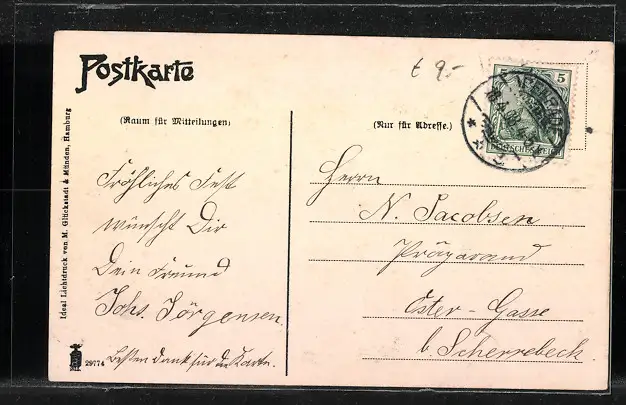 Postkarte
€ 9.-
(Raum für Mitteilungen)
(Nur für Adresse.)
5
DEUTSCHES REICH
Fröhliches Fest
wünscht Dir
Dein Freund
Johs. Jörgensen.
Besten Dank für die Karte.
Herrn
N. Jacobsen
Präparand
Öster-Gasse
b. Scherrebeck.
Ideal Lichtdruck von M. Glückstadt & Münden, Hamburg
29774